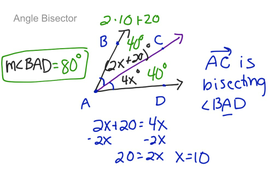 Angle Bisector
2·10+20
B
40°
C
m<BAD=80°
2x+20°
4x°
40°
A
D
AC is
bisecting
<BAD
2x+20=4x
-2x -2x
20=2x x=10